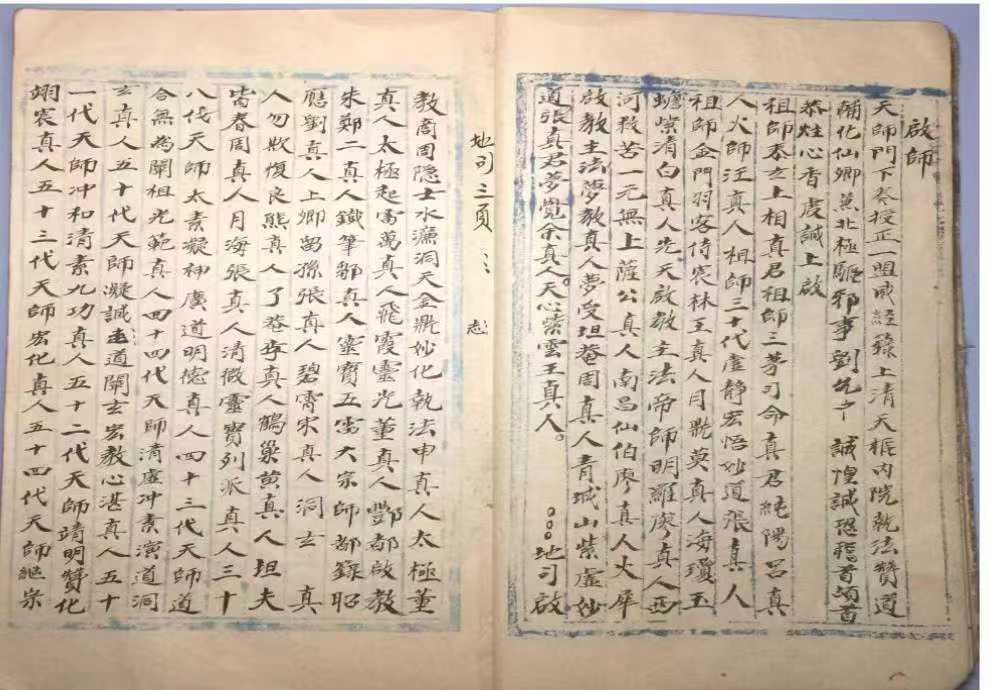 啟師
天師門下叅授正一盟威經籙上清天樞內院執法贊道
輔化仙卿兼北極驅邪事劉 誠惶誠恐稽首頓首
恭炷心香虔誠上啟
祖師泰玄上相真君祖師三茅司命真君純陽呂真
人火師汪真人相師三十代虛靜宏悟妙道張真人
祖師金門羽客侍宸林王真人月鼎莫真人海瓊玉
蟾紫清白真人先天啟教主法帝師明羅廖真人西
河救苦一元無上薩公真人南昌仙伯廖真人火犀
啟教主法夢教真人夢受坦菴周真人青城山紫虛妙
道張真君夢覺余真人。天心紫雲王真人。
。。。地司啟
地司三頁
教周周隱士水濂洞天金鼎妙化執法申真人太極董
真人太極起雷萬真人飛霞靈光董真人酆都啟教
朱鄭二真人鐵筆鄒真人靈寶五雷大宗師都錄昭
應劉真人上卿留孫張真人碧霄宋真人洞玄真
人勿欺復良熊真人了菴李真人鶴巢黃真人坦夫
雷春周真人月海張真人清微靈寶列派真人三十
八代天師太素凝神廣道明德真人四十三代天師道
合無為闡祖光範真人四十四代天師清虛冲素演道洞
玄真人五十代天師凝誠志道闡玄宏教心湛真人五十
一代天師冲和清素九功真人五十二代天師靖明贊化
翊宸真人五十三代天師宏化真人五十四代天師繼宗